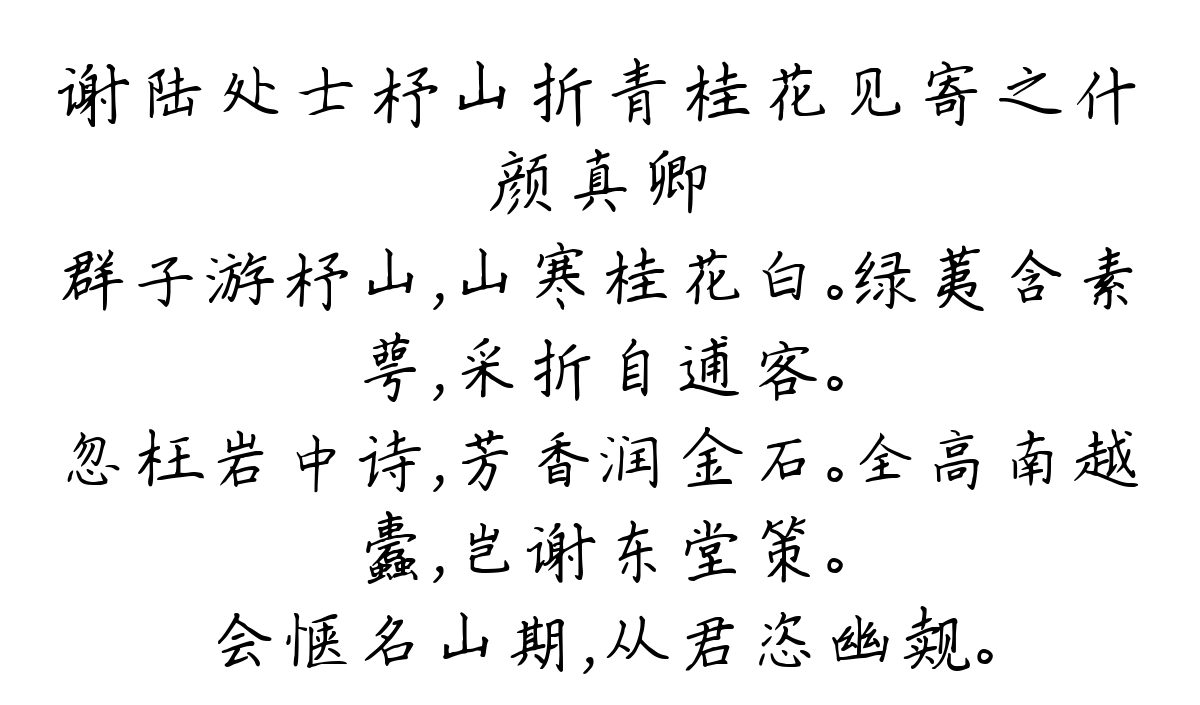 谢陆处士杼山折青桂花见寄之什
颜真卿
群子游杼山,山寒桂花白。绿荑含素
萼,采折自逋客。
忽枉岩中诗,芳香润金石。全高南越
蠹,岂谢东堂策。
会惬名山期,从君恣幽觌。